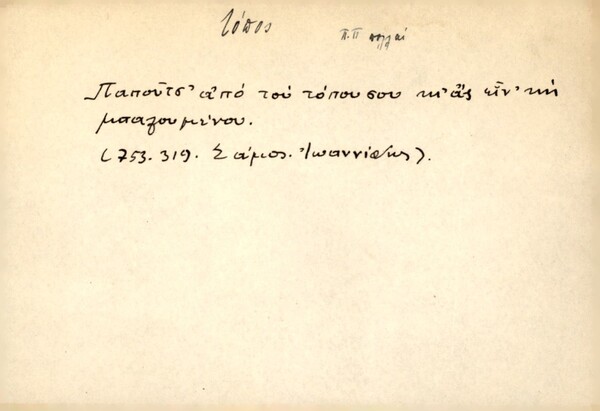 τόπος
Παποῦτσ' ἀπό τοὐ τόπου σου κι' ἄς εἶν' κὴ
μπαλουμένου.
(753. 319. Σάμος. Ἰωαννίδης).